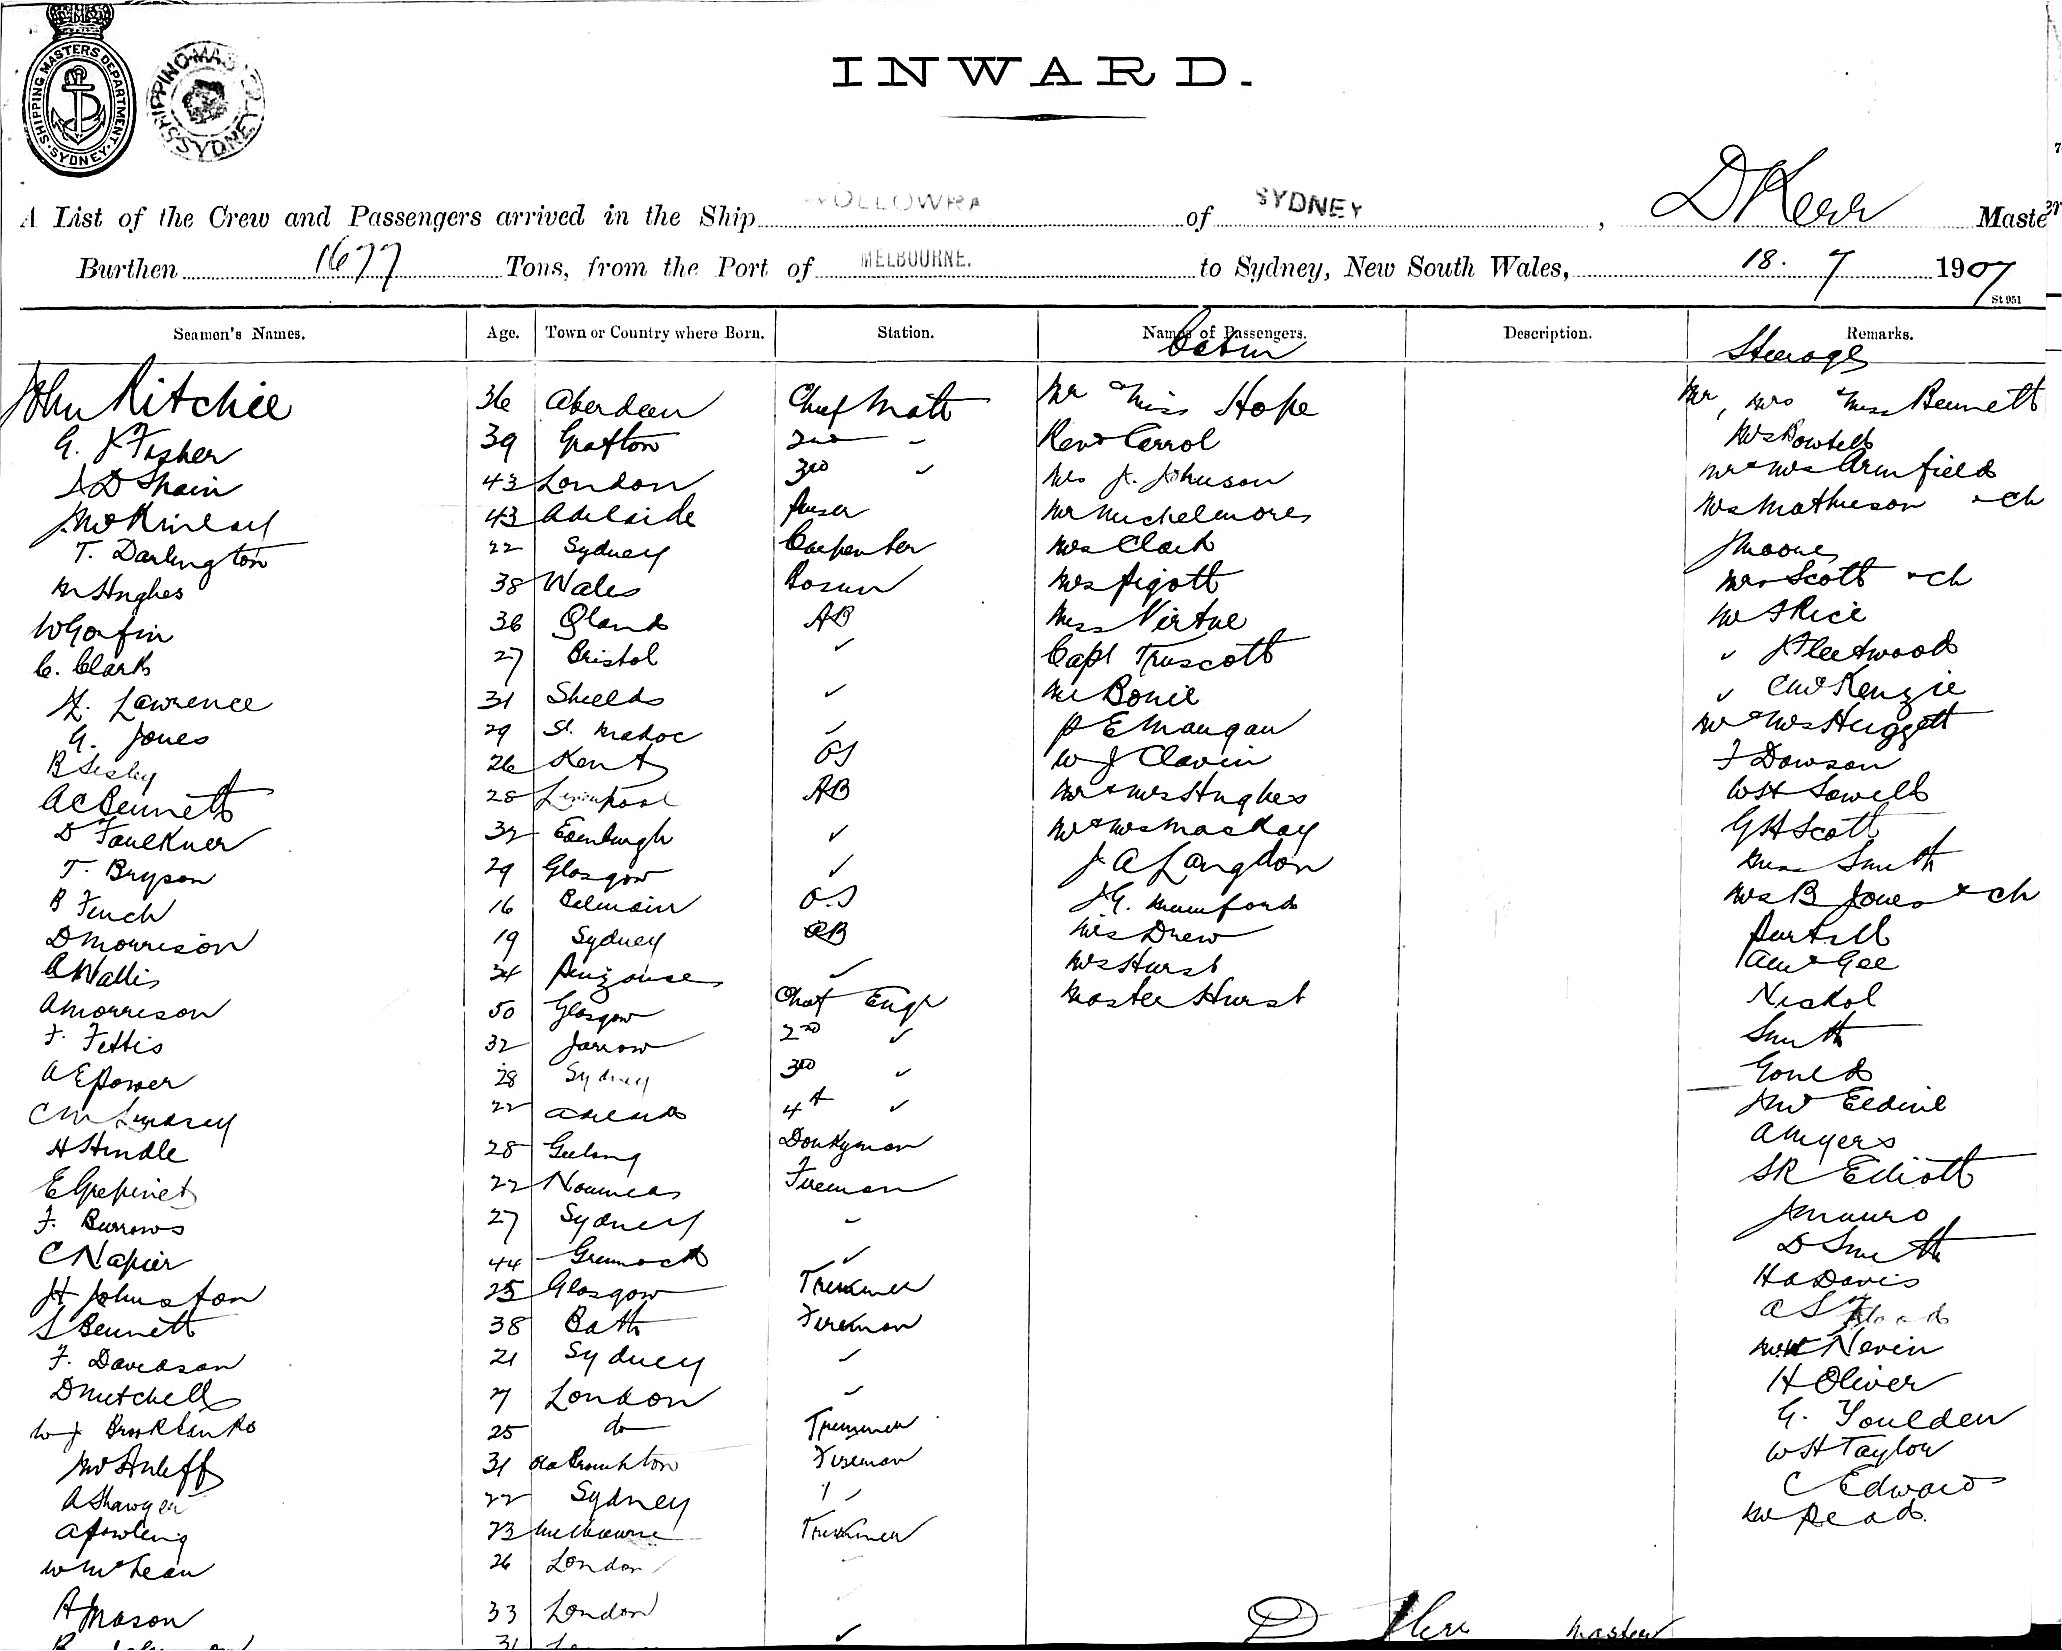 SHIPPING MASTERS DEPARTMENT · SYDNEY ·
SHIPPING MASTER SYDNEY
INWARD.
A List of the Crew and Passengers arrived in the Ship WOLLOWRA of SYDNEY, D Kerr Master
Burthen 1677 Tons, from the Port of MELBOURNE. to Sydney, New South Wales, 18. 7 1907
St 951
Seamen's Names. Age. Town or Country where Born. Station. Names of Passengers. Description. Remarks.
Cabin Steerage
John Ritchie 36 Aberdeen Chief Mate Mr & Miss Hope Mr, Mrs & Miss Bennett
G. Fisher 39 Grafton 2nd Revd Carrol Mrs Bowtell
D Spain 43 London 3rd Mrs J. Johnson Mr & Mrs Armfield
J. McKinlay 43 Adelaide Purser Mr Michelmore Mrs Mathieson & ch
T. Darlington 22 Sydney Carpenter Mrs Clark J Moore
M Hughes 38 Wales Bosun Mrs Pigott Mrs Scott & ch
W Gorfin 36 AB Miss Virtue Mr Rice
C. Clark 27 Bristol Capt Truscott Fleetwood
H. Lawrence 31 Shields Mr Bonie C McKenzie
G. Jones 29 St. Madoc P E Mangan Mr & Mrs Huggett
B Sisley 26 Kent OS W J Clavin F Dowson
A C Bennett 28 Liverpool AB Mr & Mrs Hughes W H Sowell
D Faulkner 32 Edinburgh Mr & Mrs Mackay G H Scott
T. Bryson 29 Glasgow J A Langdon Miss Smith
B Finch 16 Balmain O.S J G. Mumford Mrs B Jones & ch
D Morrison 19 Sydney AB Mrs Drew Purtell
A Wallis 34 Penzance Mrs Hurst A McGee
A Morrison 50 Glasgow Chief Engr Master Hurst Nickol
F. Fettis 32 Jarrow 2nd Smith
A E Power 28 Sydney 3rd Gould
C M Lindsay 22 4th
H Hindle 28 Geelong Donkyman A Myers
E Grepinet 22 Noumea Fireman S R Elliott
F. Burrows 27 Sydney J Mauro
C Napier 44 Greenock D Smith
H Johnston 25 Glasgow Trimmer H A Davis
S Bennett 38 Bath Fireman A S
F. Davidson 21 Sydney Nevin
D Mitchell London H Oliver
W J Brooksbanks 25 do Trimmer G. Youlden
31 Fireman W H Taylor
A Shawyer 22 Sydney C Edwards
A Powling 23 Melbourne Trimmer Mr Read.
W McLean 26 London
A Mason 33 London
31
D Kerr Master